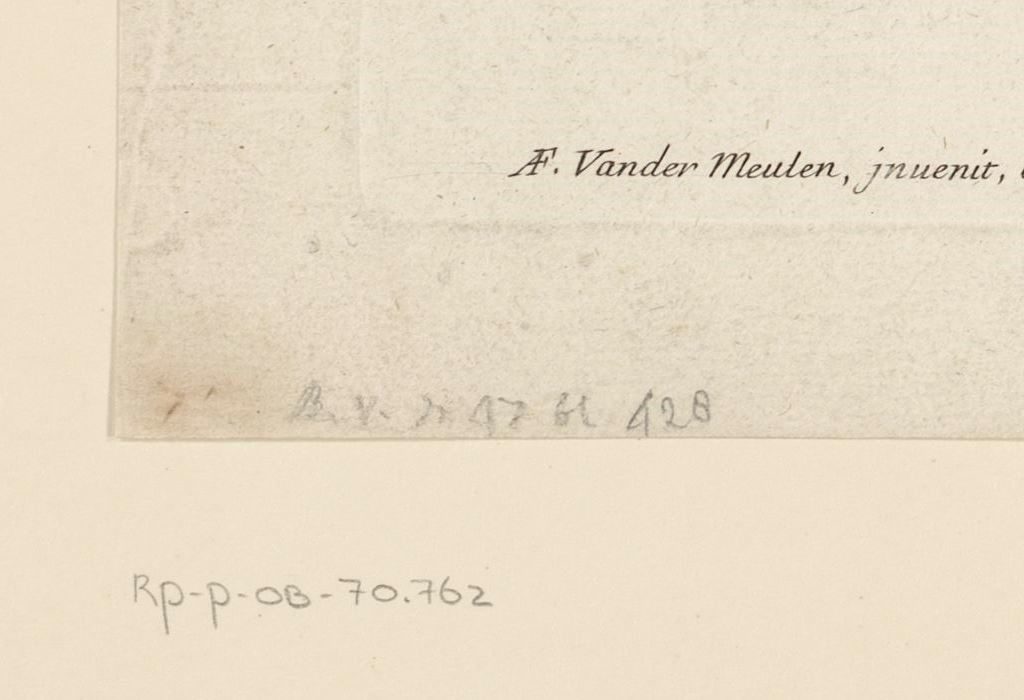 Æ. Vander Meulen, jnuenit,
428
Rp-p-OB-70.762